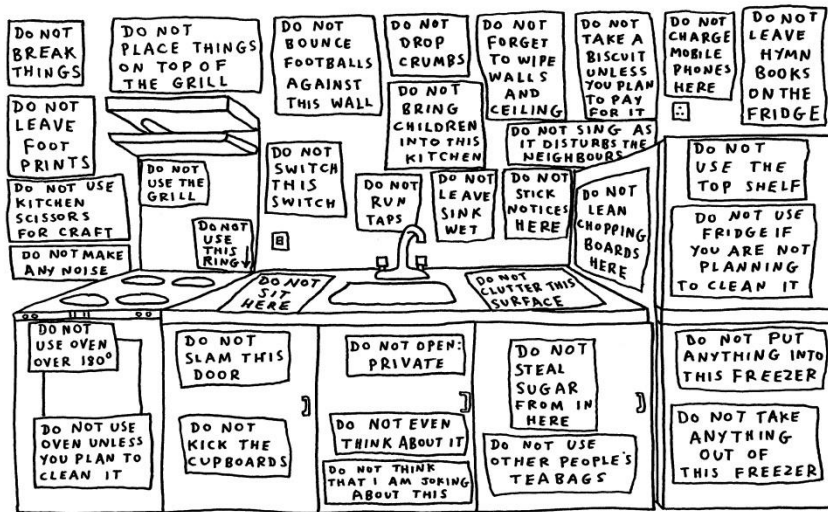 DO NOT
BREAK
THINGS
DO NOT
PLACE THINGS
ON TOP OF
THE GRILL
DO NOT
BOUNCE
FOOTBALLS
AGAINST
THIS WALL
DO NOT
DROP
CRUMBS
DO NOT
FORGET
TO WIPE
WALLS
AND
CEILING
DO NOT
TAKE A
BISCUIT
UNLESS
YOU PLAN
TO PAY
FOR IT
DO NOT
CHARGE
MOBILE
PHONES
HERE
DO NOT
LEAVE
HYMN
BOOKS
ON THE
FRIDGE
DO NOT
LEAVE
FOOT
PRINTS
DO NOT
BRING
CHILDREN
INTO THIS
KITCHEN
DO NOT SING AS
IT DISTURBS THE
NEIGHBOURS
DO NOT
USE THE
GRILL
DO NOT
SWITCH
THIS
SWITCH
DO NOT
RUN
TAPS
DO NOT
LEAVE
SINK
WET
DO NOT
STICK
NOTICES
HERE
DO NOT
LEAN
CHOPPING
BOARDS
HERE
DO NOT
USE THE
TOP SHELF
DO NOT USE
KITCHEN
SCISSORS
FOR CRAFT
DO NOT
USE
THIS
RING
DO NOT USE
FRIDGE IF
YOU ARE NOT
PLANNING
TO CLEAN IT
DO NOT MAKE
ANY NOISE
DO NOT
SIT
HERE
DO NOT
CLUTTER THIS
SURFACE
DO NOT
USE OVEN
OVER 180°
DO NOT
SLAM THIS
DOOR
DO NOT OPEN:
PRIVATE
DO NOT
STEAL
SUGAR
FROM IN
HERE
DO NOT PUT
ANYTHING INTO
THIS FREEZER
DO NOT USE
OVEN UNLESS
YOU PLAN TO
CLEAN IT
DO NOT
KICK THE
CUPBOARDS
DO NOT EVEN
THINK ABOUT IT
DO NOT THINK
THAT I AM JOKING
ABOUT THIS
DO NOT USE
OTHER PEOPLE'S
TEABAGS
DO NOT TAKE
ANYTHING
OUT OF
THIS FREEZER